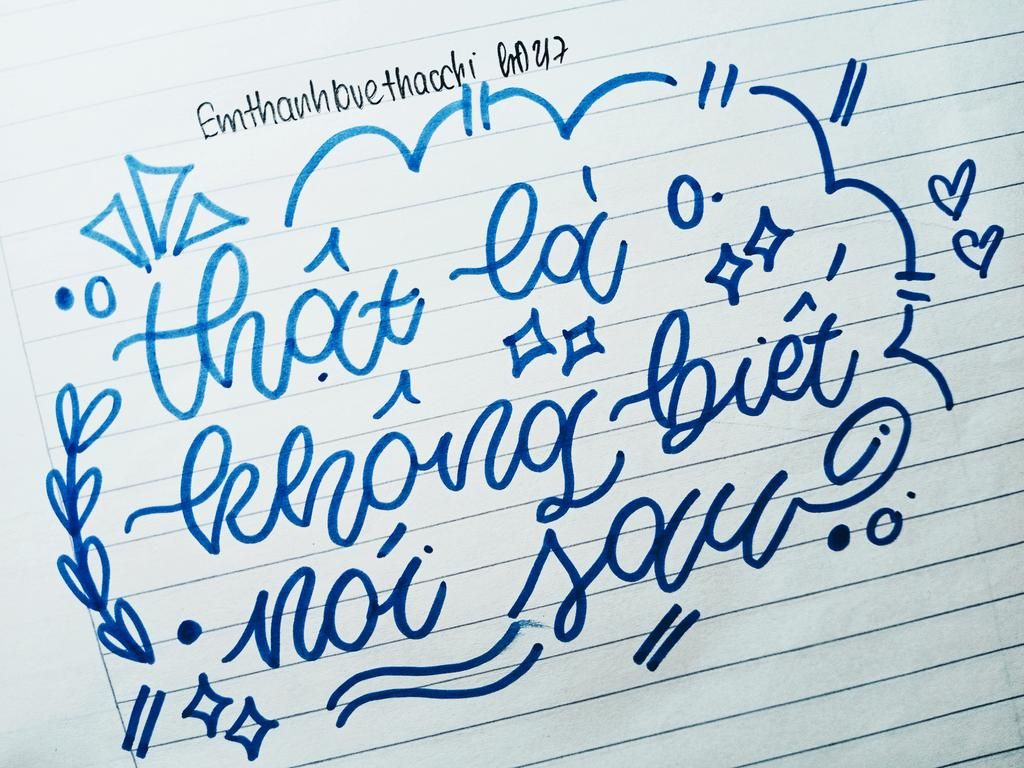 Emthanhlovethacchi
thật là
không biết
nói sau